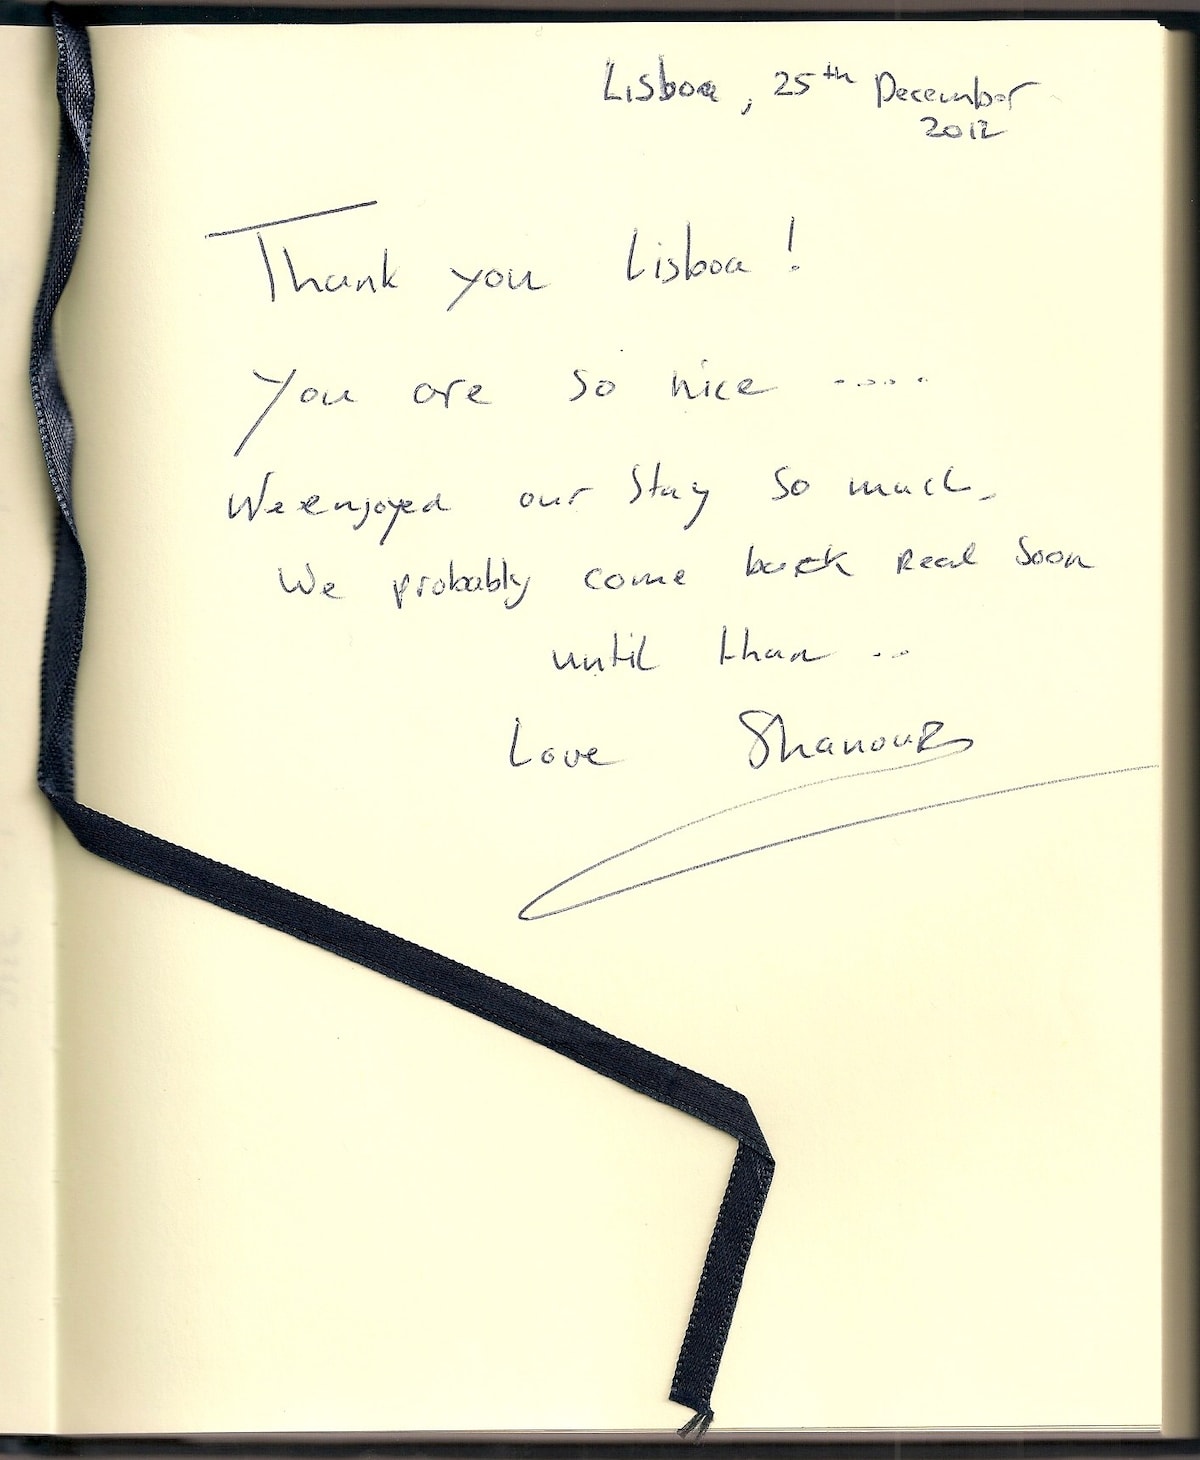 Lisboa, 25th December
2012
Thank you Lisboa!
You are so nice .....
We enjoyed our stay so much.
We probably come back real soon
until than ...
Love Shanouk